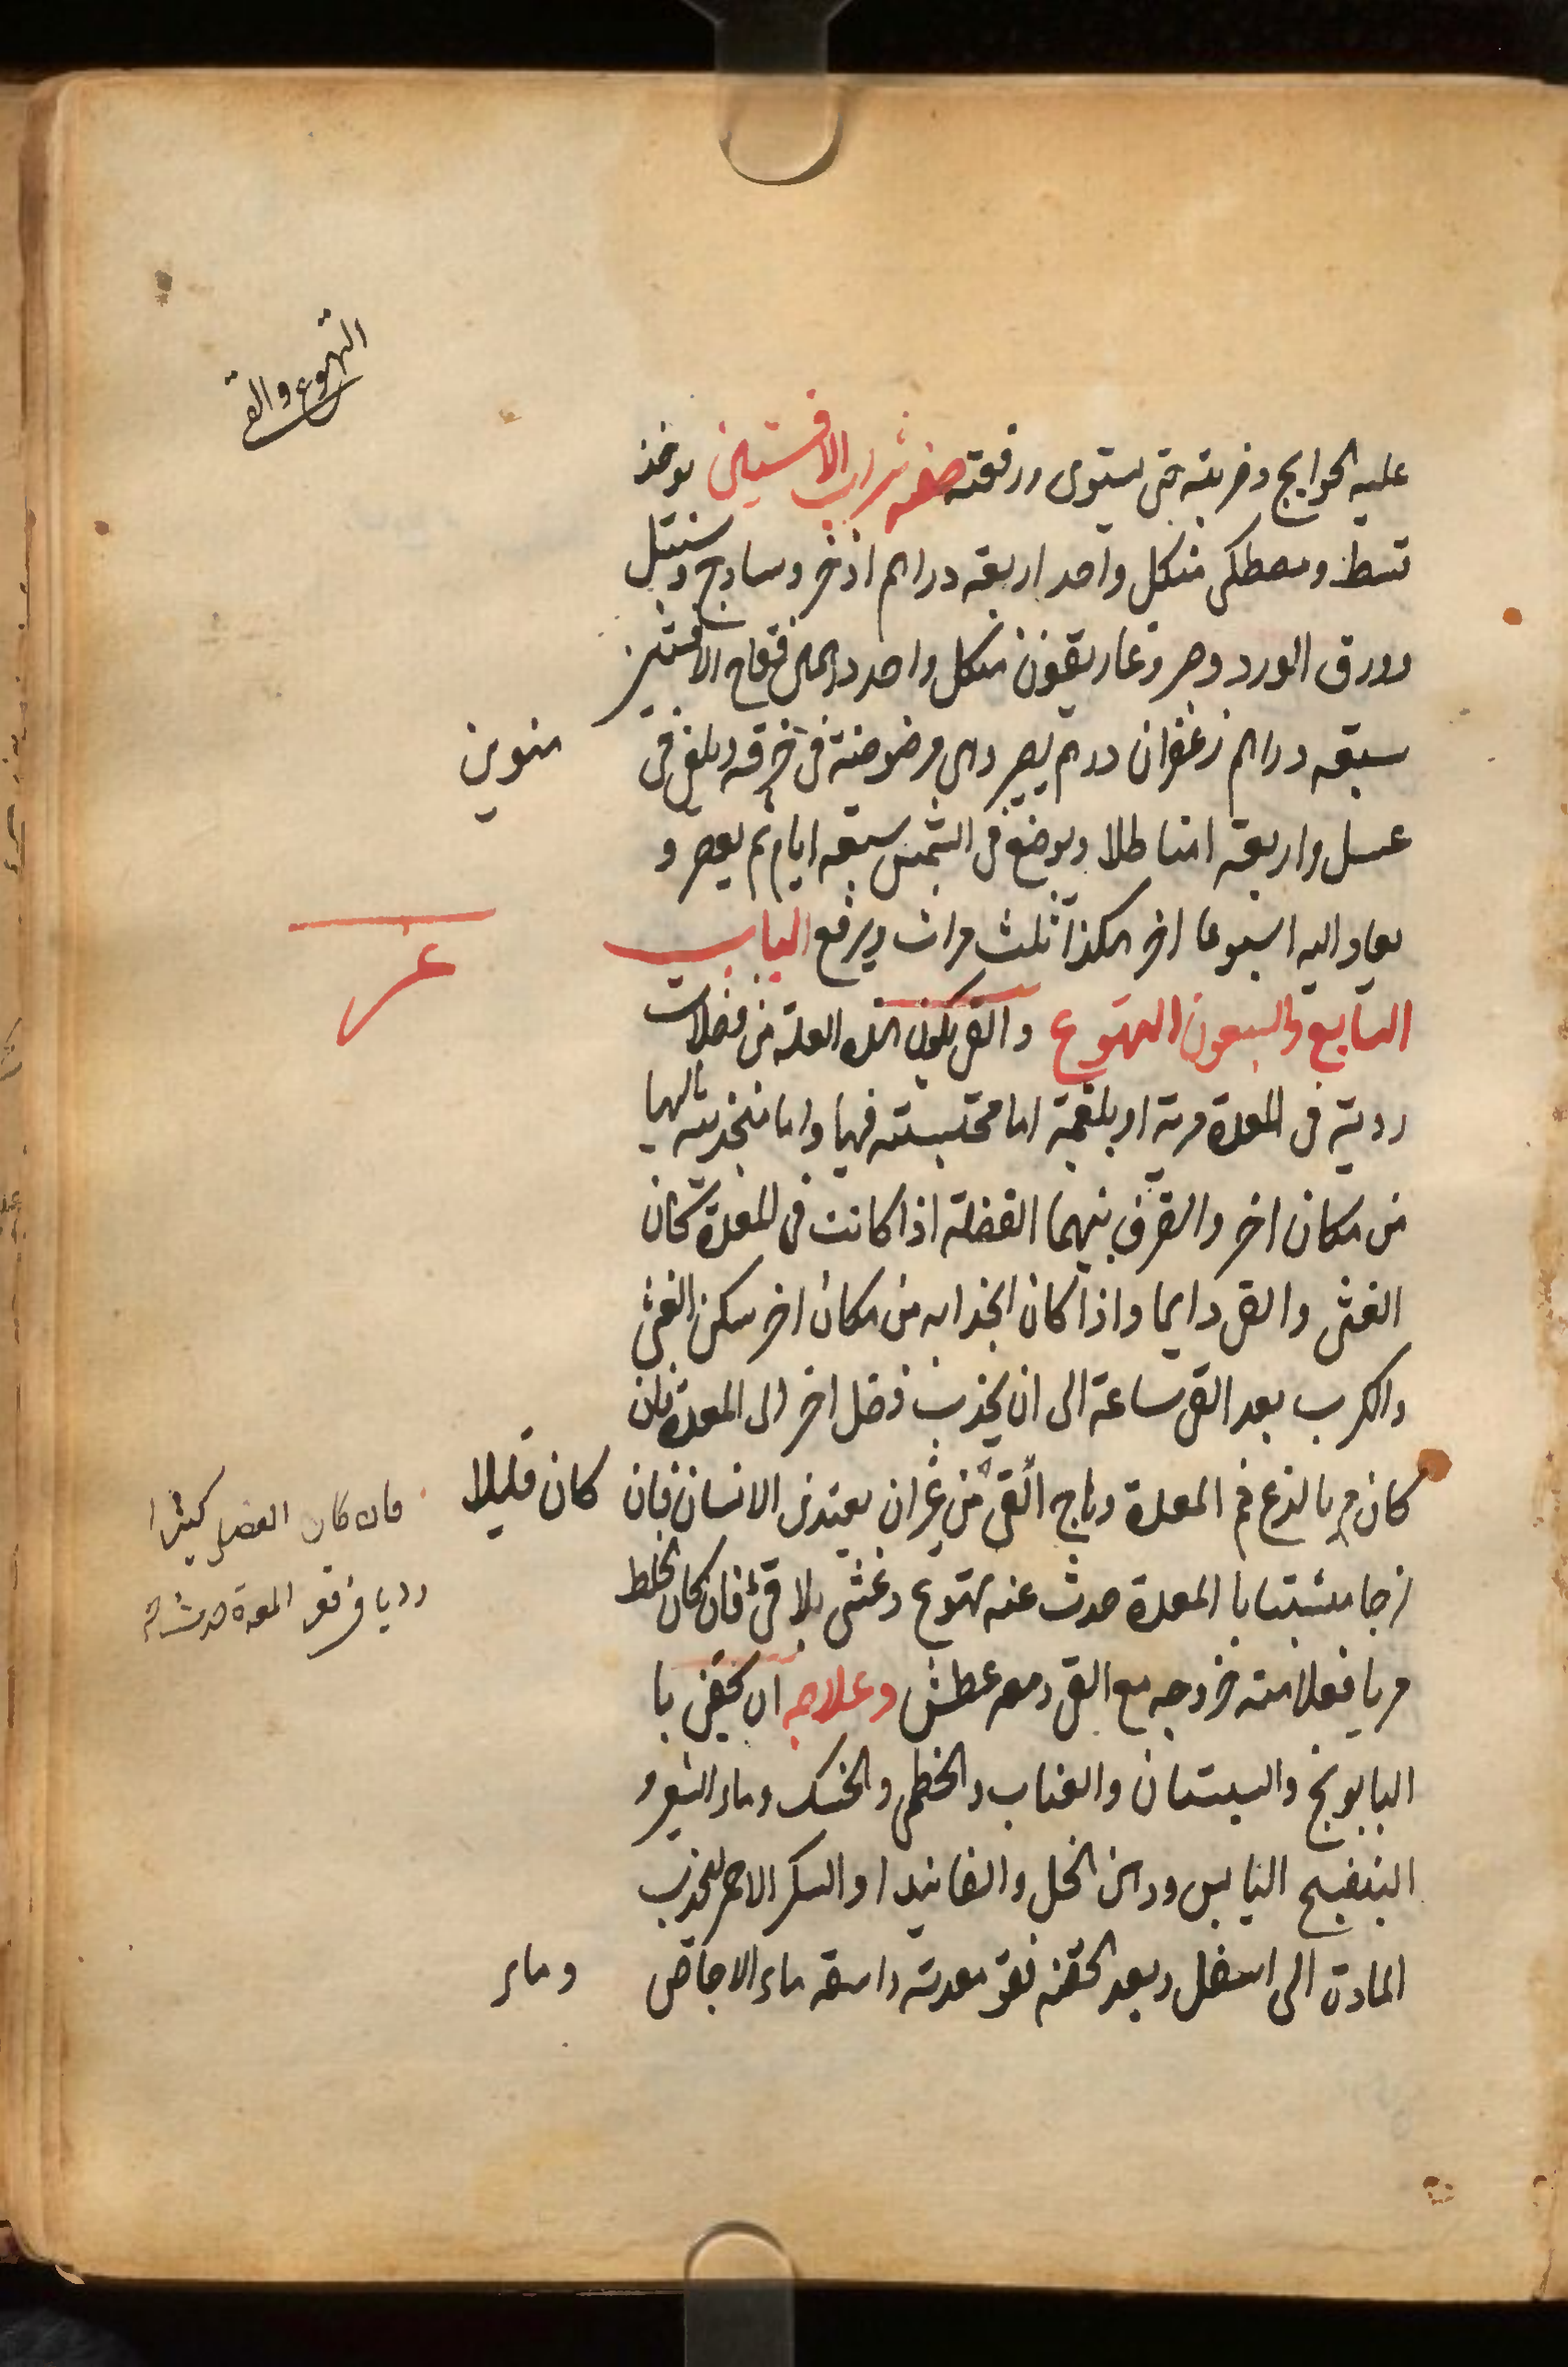 التهوع والقى
عليه الحوايج وضربته حتى يستوى ورفعته صفه شراب الافسنتين يوخذ
قسط ومصطكى منكل واحد اربعة دراهم اذخر وساذج وسنبل
وورق الورد وصبر وغاريقون منكل واحد درهمين فقاح الافسنتين
سبعه دراهم زعفران درهم يصير وهى مرضوضة فى خرقه ويلقى فى منوين
عسل واربعة امنا طلا ويوضع فى الشمس سبعه ايام ثم يعصر و
يعاد اليه اسبوعا اخر هكذا ثلث مرات ويرفع الباب
السابع والسبعون التهوع والقى يكون هذه العلة من فضلات
ردية فى المعدة مرية او بلغمية اما محتبسته فيها واما منجذبة اليها
من مكان اخر والفرق بينهما الفضلة اذا كانت فى المعدة كان
الغثى والقى دايما واذا كان انجذابه من مكان اخر سكن الغثى
والكرب بعد القى ساعة الى ان يجذب فضل اخر الى المعدة فان
كان مريا لذع فم المعدة وهاج القى من غير ان يغتذى الانسان فان كان قليلا
لزجا متشبثا با المعدة حدث عنه تهوع وغثى بلا قئ فان كان الخلط
مريا فعلامته خروجه مع القى ومعه عطش وعلاجه ان يحقن با
البابونج والسبستان والعناب والخطمى والخسك وماء الشعير و
البنفسج اليابس ودهن الخل والفانيد او السكر الاحمر ليجذب
المادة الى اسفل وبعد الحقنه فقو معدته واسقه ماء الاجاص وماء
فان كان الفضل كثيرا
رديا فى قعر المعدة حدث